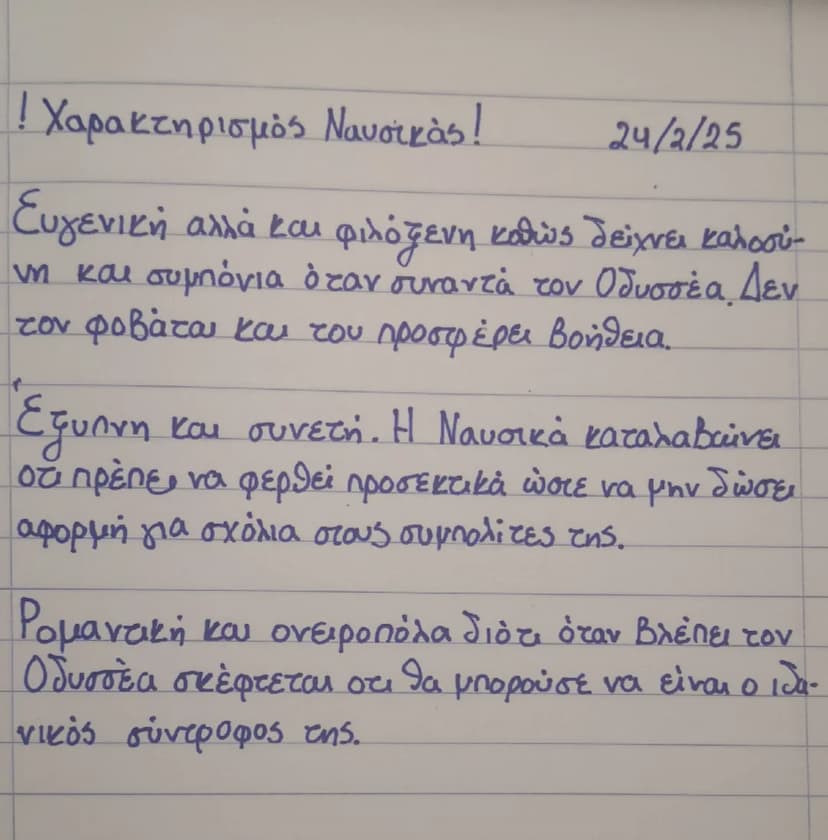 ! Χαρακτηρισμός Ναυσικάς! 24/2/25
Ευγενική αλλά και φιλόξενη καθώς δείχνει καλοσύ-
νη και συμπόνια όταν συναντά τον Οδυσσέα. Δεν
τον φοβάται και του προσφέρει βοήθεια.
Έξυπνη και συνετή. Η Ναυσικά καταλαβαίνει
οτι πρέπει να φερθεί προσεκτικά ώστε να μην δώσει
αφορμή για σχόλια στους συμπολίτες της.
Ρομαντική και ονειροπόλα διότι όταν βλέπει τον
Οδυσσέα σκέφτεται οτι θα μπορούσε να είναι ο ιδα-
νικός σύντροφος της.